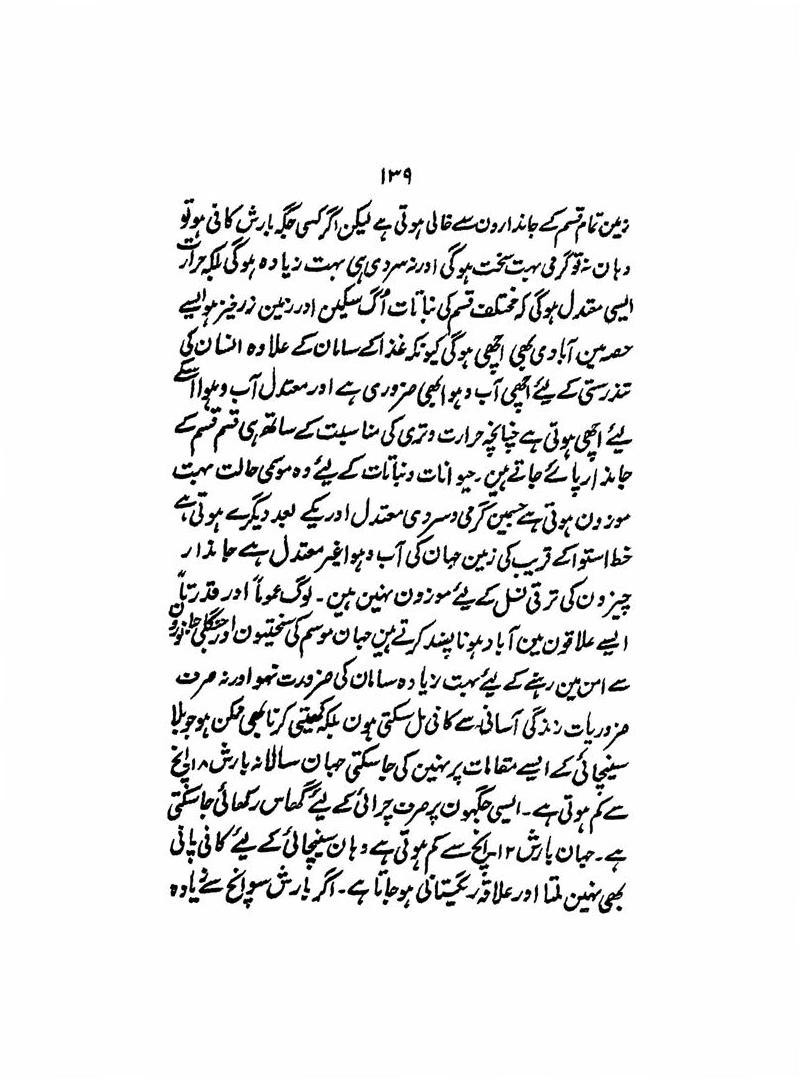 ۱۳۹
زمین تمام قسم کے جاندارون سے خالی ہوتی ہے لیکن اگر کسی جگہ بارش کافی ہو تو
وہان نہ تو گرمی بہت سخت ہوگی اور نہ سردی ہی بہت زیادہ ہوگی بلکہ حرارت
ایسی معتدل ہوگی کہ مختلف قسم کی نباتات اُگ سکین اور زمین زرخیز ہو ایسے
حصہ مین آبادی بھی اچھی ہوگی کیونکہ غذا کے سامان کے علاوہ انسان کی
تندرستی کے لیئے اچھی آب و ہوا بھی ضروری ہے اور معتدل آب و ہوا اسکے
لیئے اچھی ہوتی ہے چنانچہ حرارت و تری کی مناسبت کے ساتھ ہی قسم قسم کے
جاندار پائے جاتے ہین۔ حیوانات و نباتات کے لیئے وہ موسمی حالت بہت
موزون ہوتی ہے جسمین گرمی و سردی معتدل اور یکے بعد دیگرے ہوتی ہے
خط استوا کے قریب کی زمین جہان کی آب و ہوا غیر معتدل ہے جاندار
چیزون کی ترقی نسل کے لیئے موزون نہین ہین۔ لوگ عموماً اور قدرتاً اُن
ایسے علاقون مین آباد ہونا پسند کرتے ہین جہان موسم کی سختیون اور جنگلی جانورو
سے امن مین رہنے کے لیئے بہت زیادہ سامان کی ضرورت نہو اور نہ صرف
ضروریات زندگی آسانی سے کافی مل سکتی ہون بلکہ کھیتی کرنا بھی ممکن ہو جو بلا
سینچائی کے ایسے مقامات پر نہین کی جاسکتی جہان سالانہ بارش ۱۸ انچ
سے کم ہوتی ہے۔ ایسی جگہون پر صرف چرائی کے لیئے گھاس رکھائی جاسکتی
ہے۔ جہان بارش ۱۲ انچ سے کم ہوتی ہے وہان سینچائی کے لیئے کافی پانی
بھی نہین ملتا اور علاقہ ریگستانی ہوجاتا ہے۔ اگر بارش سو انچ سے زیادہ